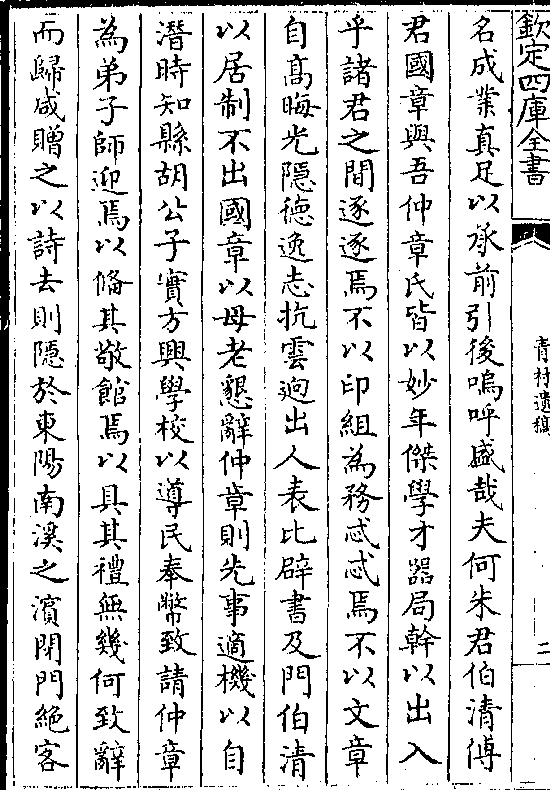 欽定四庫全書
青村遺稿
二
名成業真足以承前引後嗚呼盛哉夫何朱君伯清傅
君國章與吾仲章氏皆以妙年傑學才器局幹以出入
乎諸君之間逐逐焉不以印組為務忒忒焉不以文章
自髙晦光隱徳逸志抗雲逈出人表比辟書及門伯清
以居制不出國章以母老懇辭仲章則先事適機以自
潛時知縣胡公子實方興學校以導民奉幣致請仲章
為弟子師迎焉以脩其敬館焉以具其禮無幾何致辭
而歸咸贈之以詩去則隱於東陽南溪之濵閉門絶客